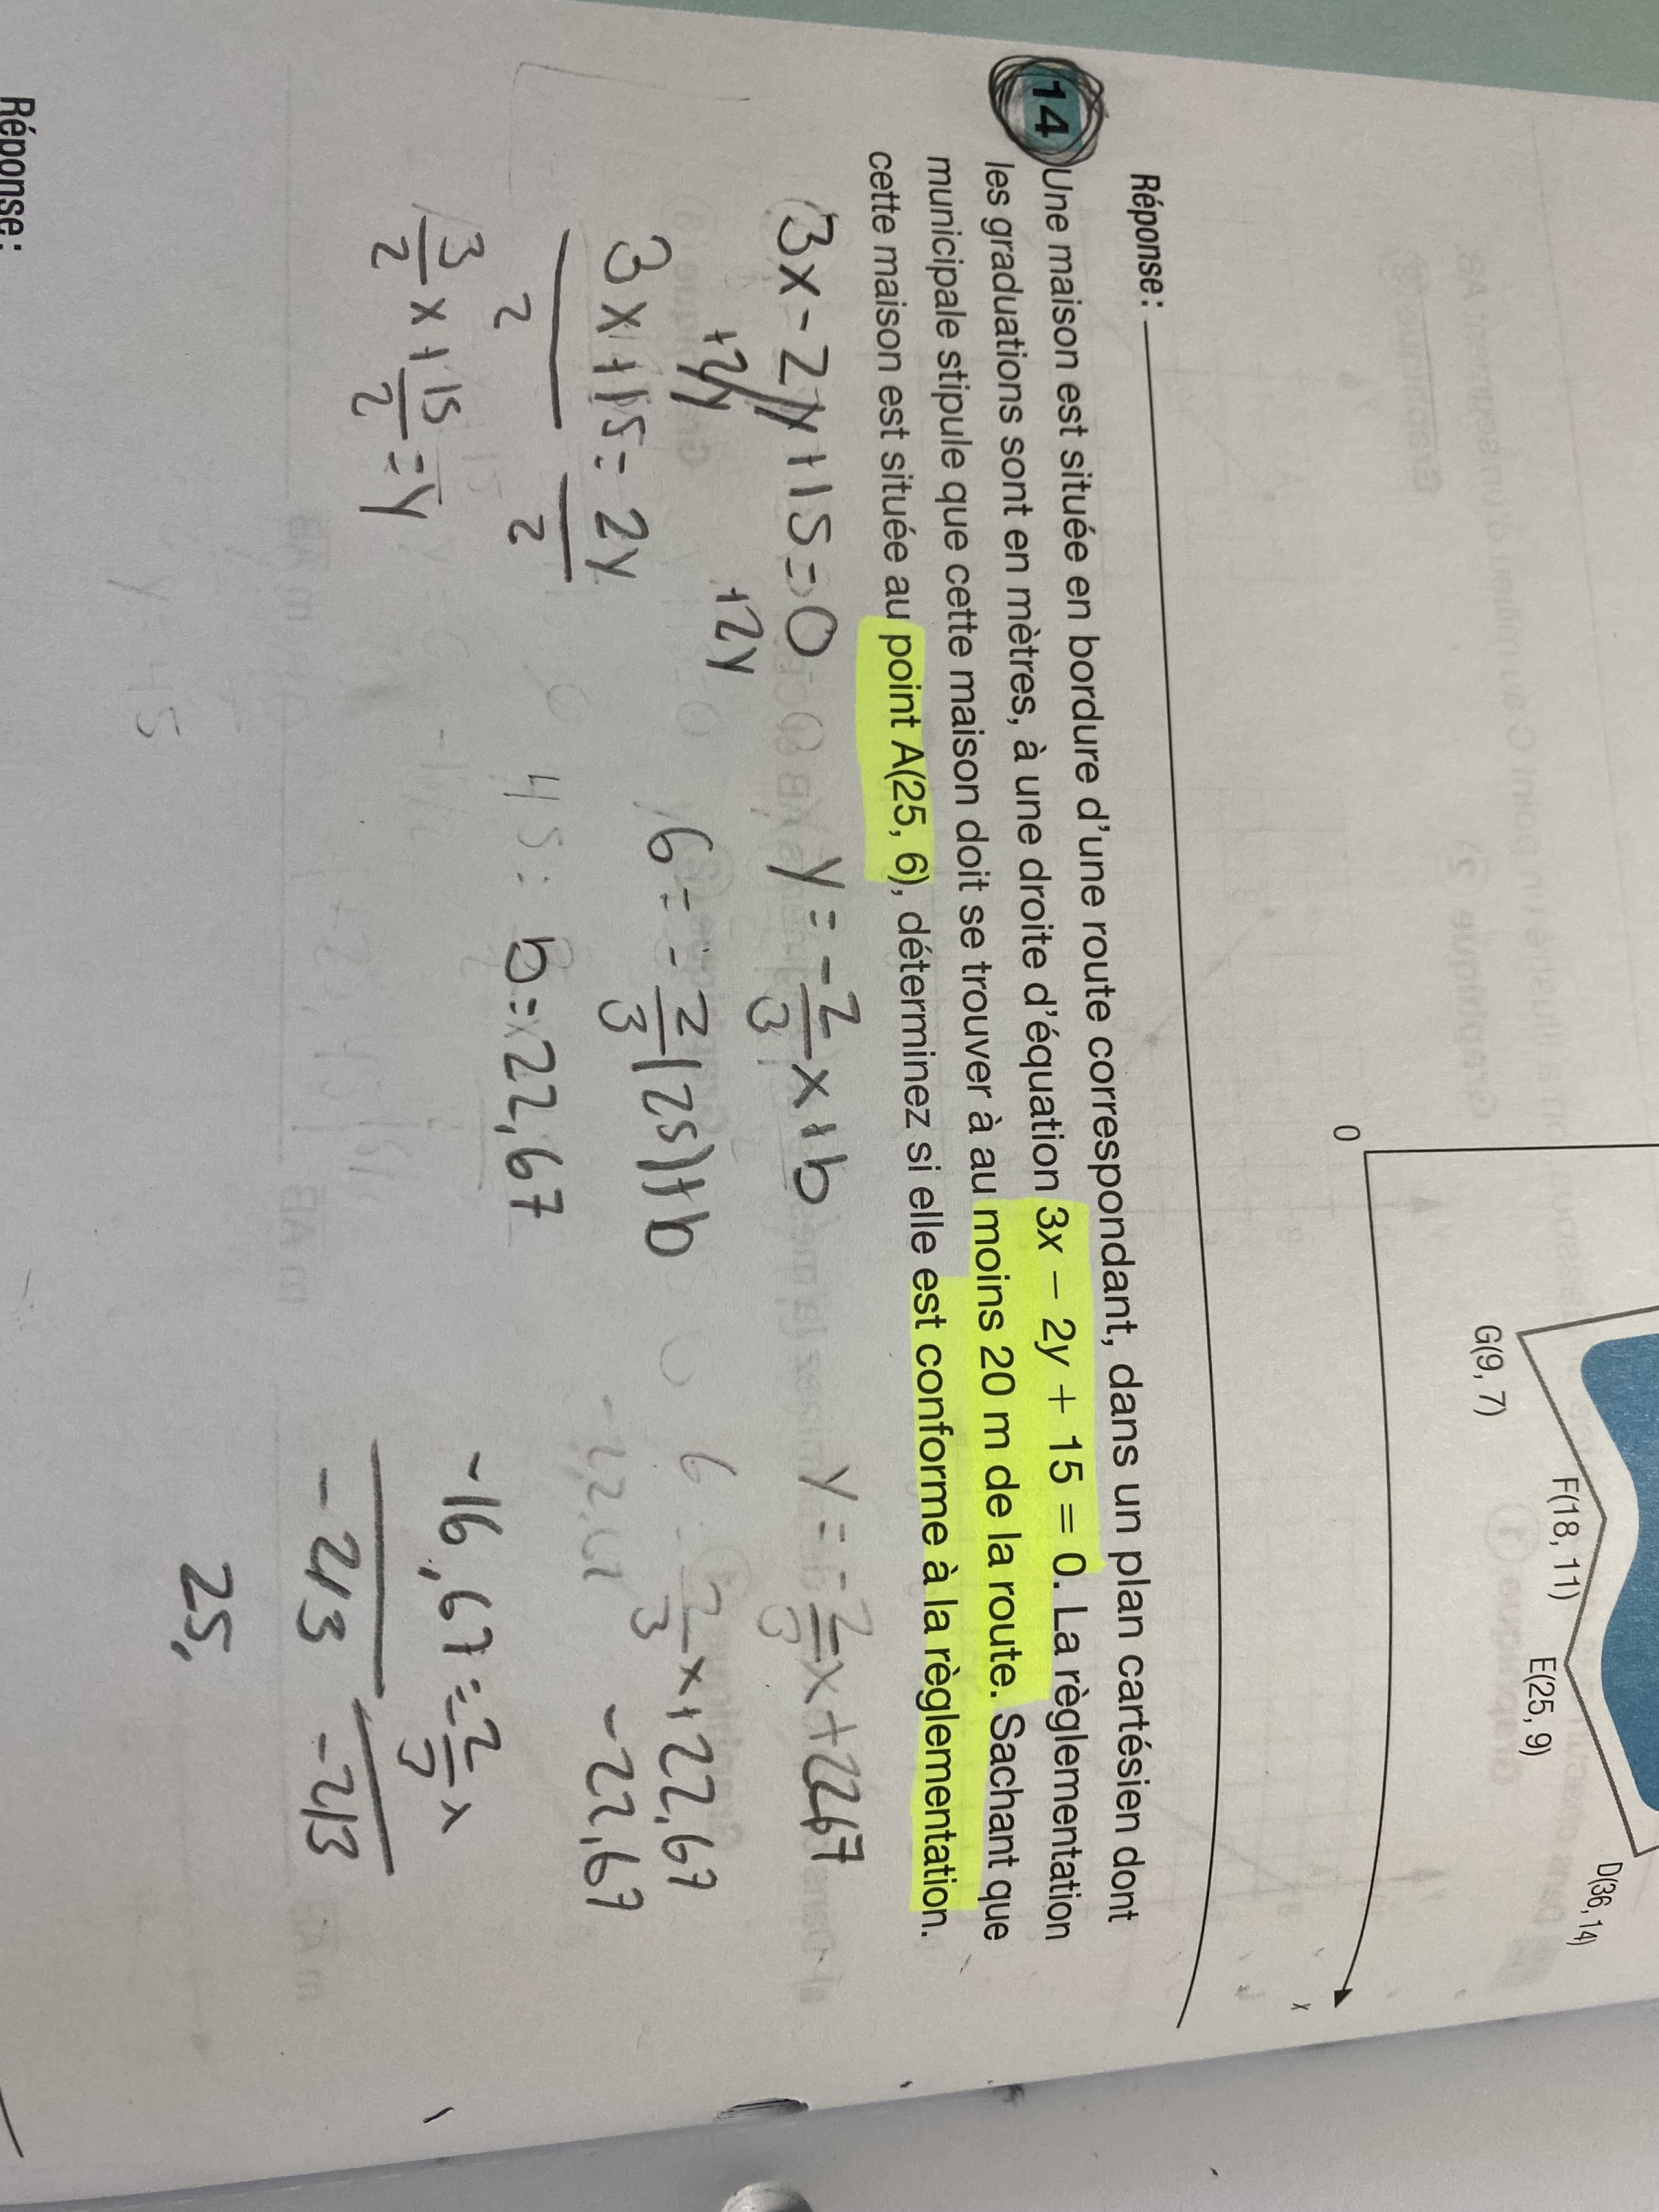 0
x
G(9, 7)
F(18, 11)
E(25, 9)
D(36, 14)
Réponse :
14 Une maison est située en bordure d'une route correspondant, dans un plan cartésien dont
les graduations sont en mètres, à une droite d'équation 3x − 2y + 15 = 0. La règlementation
municipale stipule que cette maison doit se trouver à au moins 20 m de la route. Sachant que
cette maison est située au point A(25, 6), déterminez si elle est conforme à la règlementation.
3x - 2y + 15 = 0
+2y +2y
3x + 15 = 2y
2 2
3/2 x + 15/2 = y
y = -2/3 x + b
6 = -2/3 (25) + b
b = 22,67
y = -2/3 x + 22,67
6 2/3 x + 22,67
-22,67 -22,67
-16,67 = -2/3 x
-2/3 -2/3
25,
Réponse :